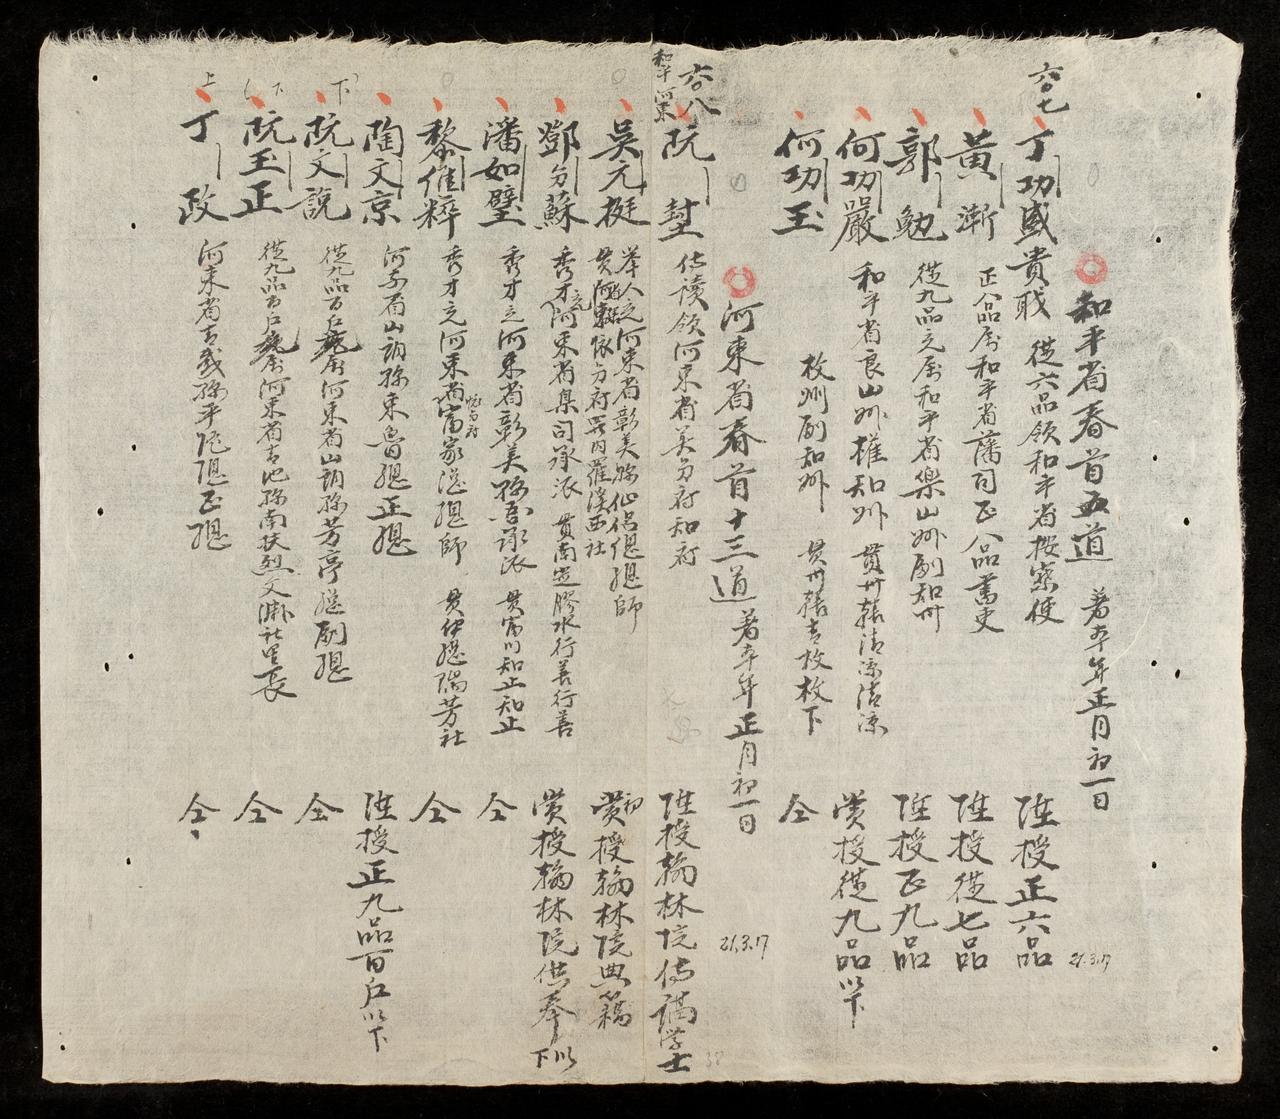 六〇七
和平省春首五道 著本年正月初一日
21.3.17
丁功盛貴戝 從六品領和平省按察使 陞授正六品
黃漸 正八品屬和平省藩司正八品舊吏 陞授從七品
郭勉 從九品充屬和平省樂山州副知州 陞授正九品
何功嚴 和平省良山州權知州 貫州轄清凉清凉 賞授從九品以下
何功玉 枚州副知州 貫州轄吉枚枚下 仝
六〇八
河東省春首十三道 著本年正月初一日
21.3.17
和平河東
阮 侍讀領河東省美分府知府 陞授翰林院侍講学士
吳元梃 举人充河東省彰美縣仙侣總總師 貫河東懷分府署內羅溪西社 初賞授翰林院典籍
鄧分蘇 秀才充河東省臬司承派 貫南定膠水行善行善 賞授翰林院供奉以下
潘如璧 秀才充河東省彰美縣承派 貫富川知止知止 仝
黎催粹 秀才充河東省富家總總師 貫伊總瑞芳社 仝
陶文京 河東省山朗縣東魯總正總 陞授正九品百户以下
阮文說 從九品百户屬河東省山朗縣芳亭總副總 仝
阮玉正 從九品百户屬河東省青池縣南扶烈文淵社里長 仝
丁政 河東省青威縣平陀總正總 仝
上
下
下